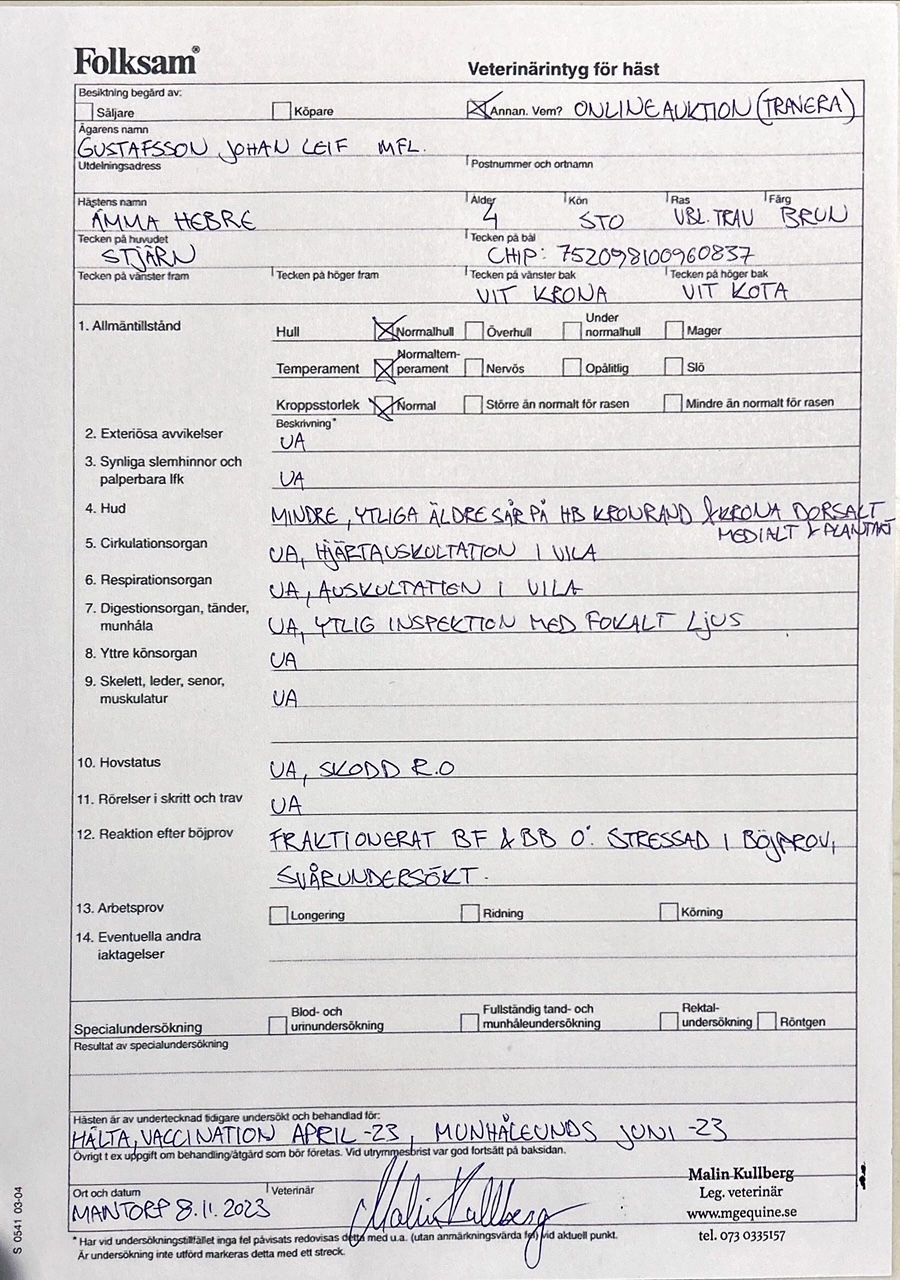 Folksam®
Veterinärintyg för häst
Besiktning begärd av:
Säljare Köpare Annan. Vem? ONLINEAUKTION (TRANERA)
Ägarens namn
GUSTAFSSON JOHAN LEIF MFL.
Utdelningsadress Postnummer och ortnamn
Hästens namn Ålder Kön Ras Färg
ÄMMA HEBRE 4 STO VBL. TRAV BRUN
Tecken på huvudet Tecken på bål
STJÄRN CHIP: 752098100960837
Tecken på vänster fram Tecken på höger fram Tecken på vänster bak Tecken på höger bak
VIT KRONA VIT KOTA
1. Allmäntillstånd
Hull Normalhull Överhull Under normalhull Mager
Temperament Normaltem-perament Nervös Opålitlig Slö
Kroppsstorlek Normal Större än normalt för rasen Mindre än normalt för rasen
Beskrivning*
2. Exteriösa avvikelser UA
3. Synliga slemhinnor och
palperbara lfk UA
4. Hud MINDRE, YTLIGA ÄLDRE SÅR PÅ HB KRONRAND & KRONA DORSALT
MEDIALT & PLANTART
5. Cirkulationsorgan UA, HJÄRTAUSKULTATION I VILA
6. Respirationsorgan UA, AUSKULTATION I VILA
7. Digestionsorgan, tänder,
munhåla UA, YTLIG INSPEKTION MED FOKALT LJUS
8. Yttre könsorgan UA
9. Skelett, leder, senor,
muskulatur UA
10. Hovstatus UA, SKODD R.O
11. Rörelser i skritt och trav UA
12. Reaktion efter böjprov FRAKTIONERAT BF & BB 0°. STRESSAD I BÖJPROV,
SVÅRUNDERSÖKT.
13. Arbetsprov Longering Ridning Körning
14. Eventuella andra
iaktagelser
Specialundersökning Blod- och urinundersökning Fullständig tand- och munhåleundersökning Rektal-undersökning Röntgen
Resultat av specialundersökning
Hästen är av undertecknad tidigare undersökt och behandlad för:
HÄLTA, VACCINATION APRIL -23, MUNHÅLEUNDS JUNI -23
Övrigt t ex uppgift om behandling/åtgärd som bör företas. Vid utrymmesbrist var god fortsätt på baksidan.
Ort och datum Veterinär
MANTORP 8.11.2023 Malin Kullberg
Malin Kullberg
Leg. veterinär
www.mgequine.se
tel. 073 0335157
* Har vid undersökningstillfället inga fel påvisats redovisas detta med u.a. (utan anmärkningsvärda fel) vid aktuell punkt.
Är undersökning inte utförd markeras detta med ett streck.
S 0541 03-04